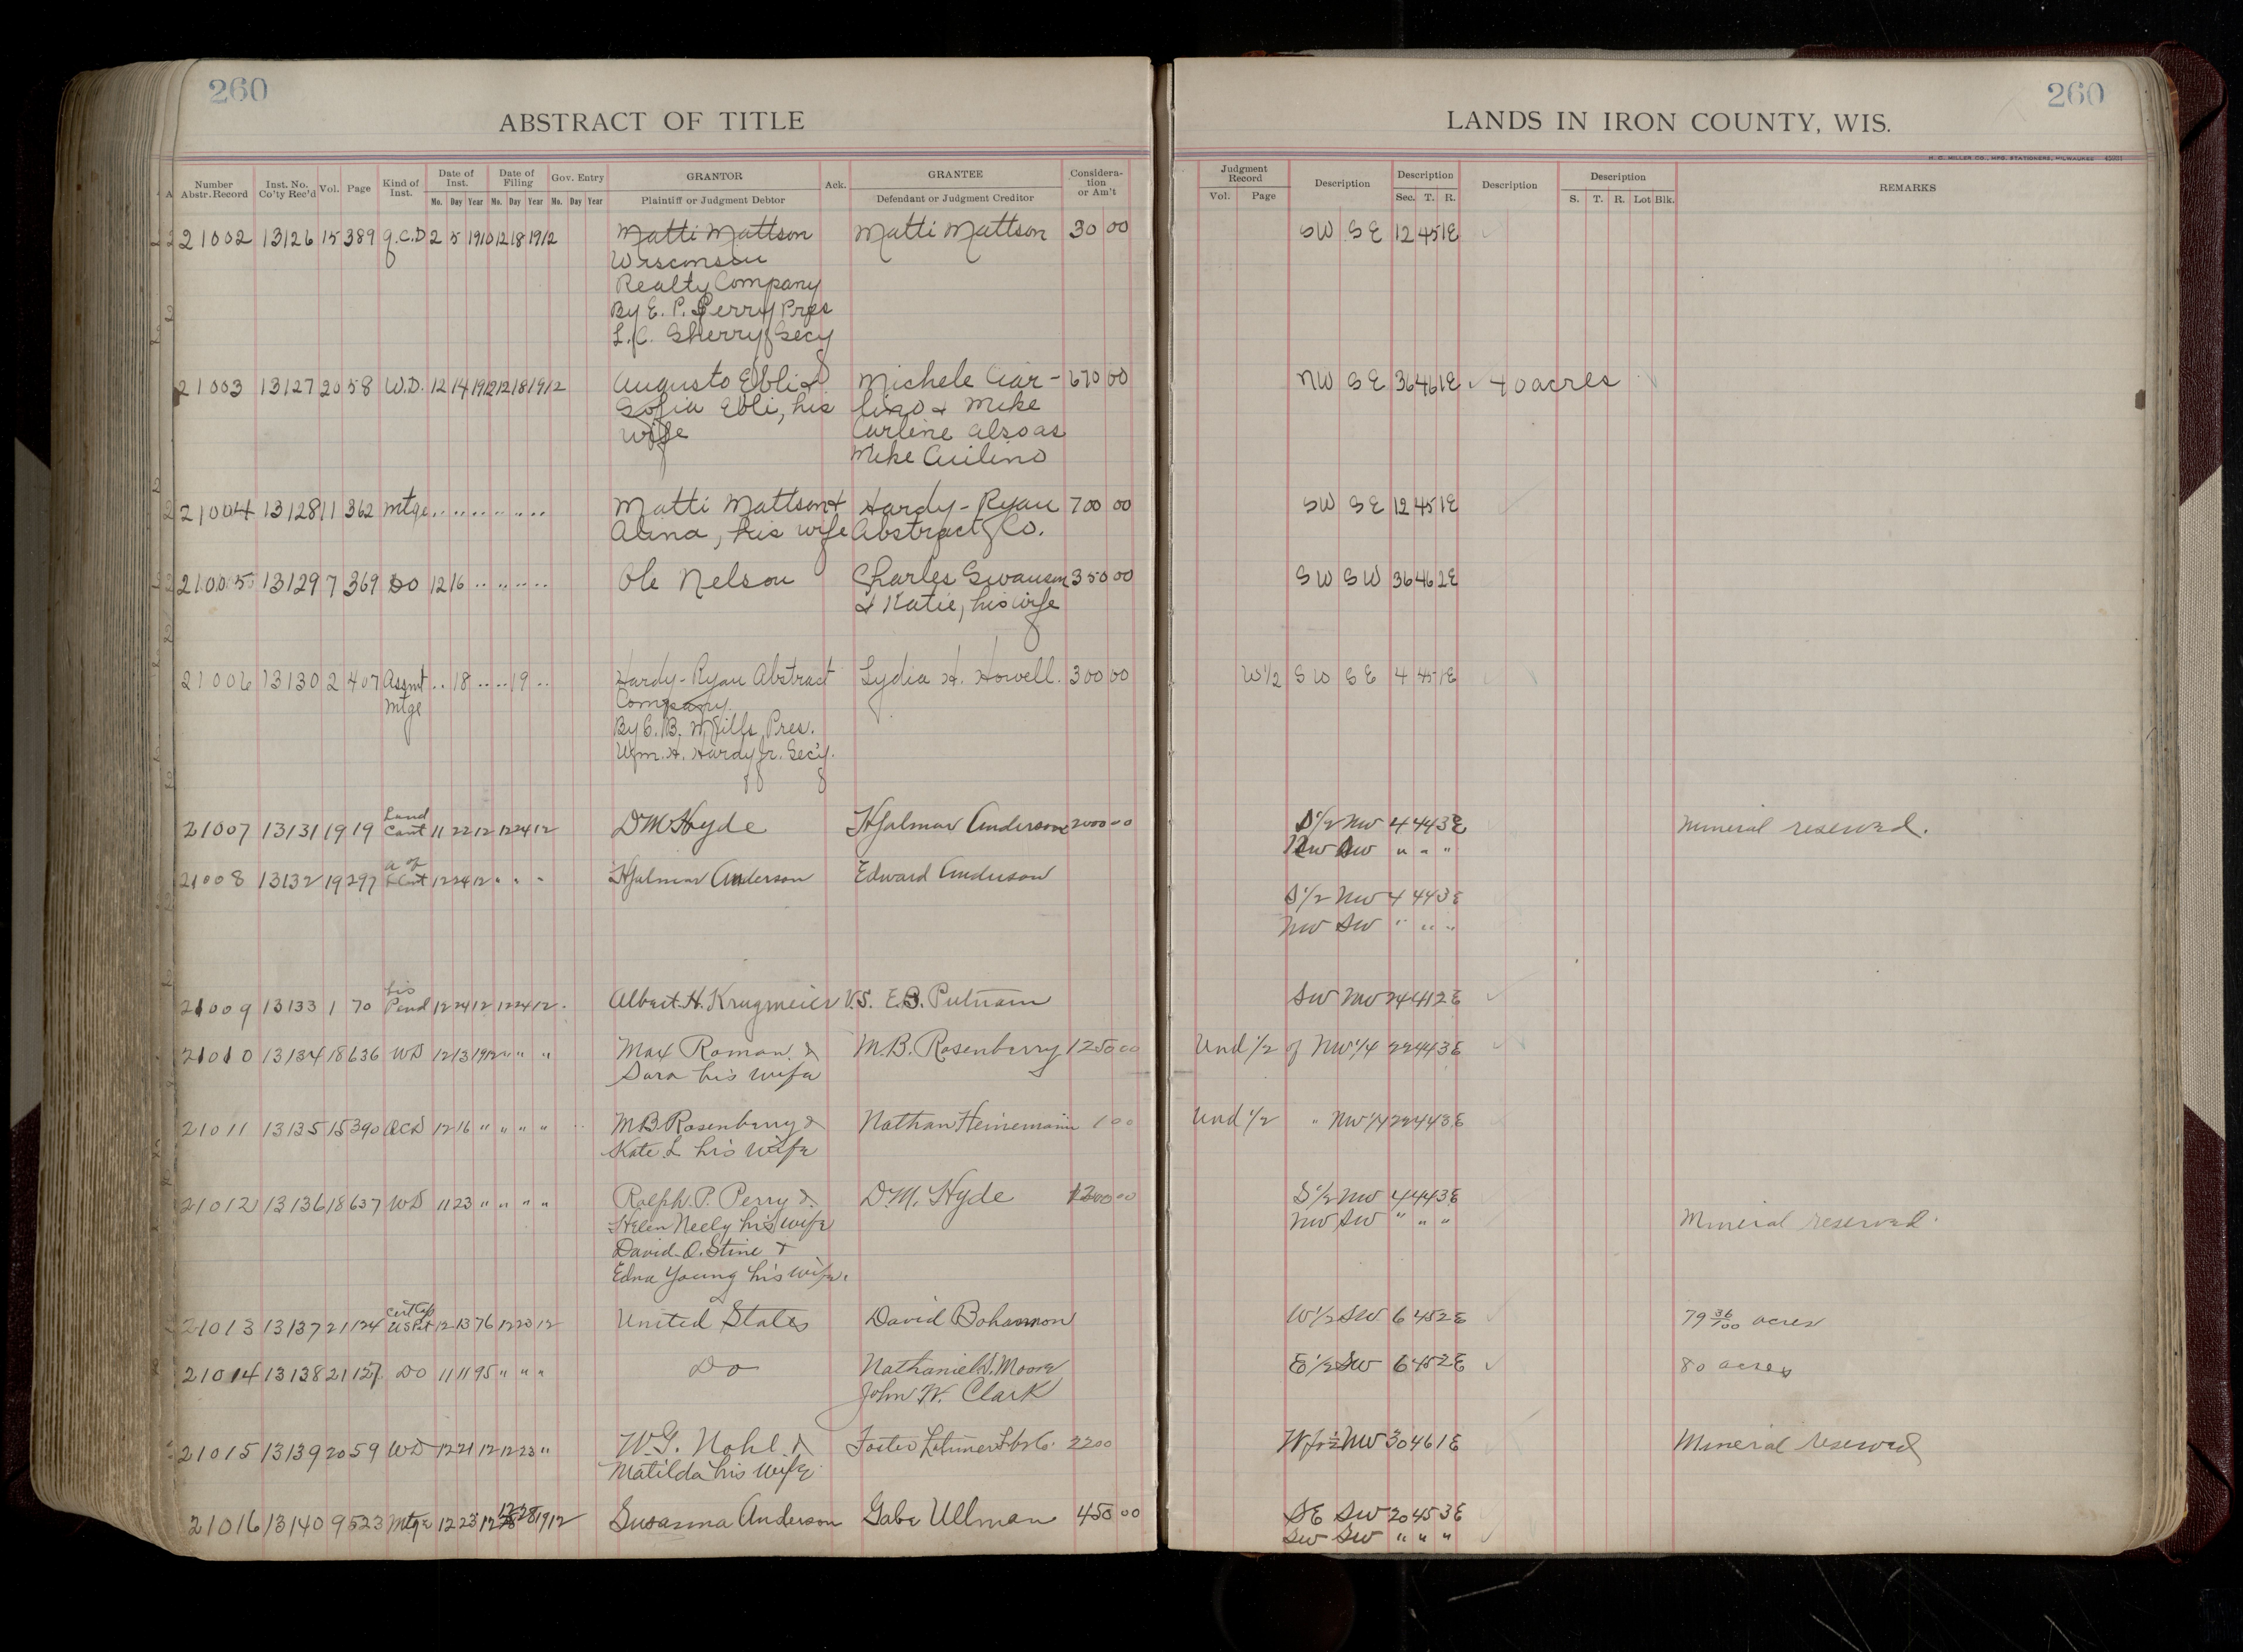 260
260
ABSTRACT OF TITLE
LANDS IN IRON COUNTY, WIS.
H. C. MILLER CO., MFG. STATIONERS, MILWAUKEE
Number Abstr. Record Inst. No. Co'ty Rec'd Vol. Page Kind of Inst. Date of Inst. Mo. Day Year Date of Filing Mo. Day Year Gov. Entry Mo. Day Year GRANTOR Plaintiff or Judgment Debtor Ack. GRANTEE Defendant or Judgment Creditor Consideration or Am't
Judgment Record Vol. Page Description Description Sec. T. R. Description Description S. T. R. Lot Blk. REMARKS
21002 13126 15 389 Q.C.D 2 5 1910 12 18 1912 Matti Mattson Matti Mattson 30 00 SW SE 12 45 1E
Wisconsin
Realty Company
By E. P. Sherry Pres
L. C. Sherry Secy
21003 13127 20 58 W.D. 12 14 1912 12 18 1912 Augusto Ebli & Michele Ciar- 670 00 NW SE 36 46 1E ✓ 40 acres
Sofia Ebli, his lino & Mike
wife Carline also as
Mike Cuilino
21004 13128 11 362 Mtge " " " " " " Matti Mattson & Hardy-Ryan 700 00 SW SE 12 45 1E
Alina, his wife Abstract Co.
21005 13129 7 369 Do 12 16 " " " " Ole Nelson Charles Swanson 350 00 SW SW 36 46 2E
& Katie, his wife
21006 13130 2 407 Asgmt " 18 " " 19 " Hardy-Ryan Abstract Lydia H. Howell. 300 00 W 1/2 SW SE 4 45 1E
Mtge Company
By Pres.
Wm. H. Hardy Jr. Sec'y.
21007 13131 19 19 Land Cont 11 22 12 12 24 12 D M Hyde Hjalmar Anderson 2000 00 S 1/2 NW 4 44 3E Mineral reserved.
NW SW " " "
21008 13132 19 297 a of L Cont 12 24 12 " " " Hjalmar Anderson Edward Anderson
S 1/2 NW 4 44 3E
NW SW " " "
21009 13133 1 70 Lis Pend 12 24 12 12 24 12 Albert H. Krugmeier V.S. E.B. Putnam SW NW 24 41 2E ✓
21010 13134 18 636 WD 12 13 1912 " " " Max Roman & M.B. Rosenberry 1250 00 Und 1/2 of NW 1/4 22 44 3E
Sara his wife
21011 13135 15 390 QCD 12 16 " " " " M B Rosenberry & Nathan Heinemann 1 00 Und 1/2 " NW 1/4 22 44 3E
Kate L his wife
21012 13136 18 637 WD 11 23 " " " " Ralph. P. Perry & D. M. Hyde 1200 00 S 1/2 NW 4 44 3E
Helen Neely his wife NW SW " " " Mineral reserved.
David O. Stine &
Edna Young his wife.
21013 13137 21 124 Cert Cop US Pat 12 13 76 12 23 12 United States David Bohannon W 1/2 SW 6 45 2E 79 36/100 acres
21014 13138 21 157 Do 11 11 95 " " " Do Nathaniel D. Moore E 1/2 SW 6 45 2E ✓ 80 acres
John W. Clark
21015 13139 20 59 WD 12 21 12 12 23 " W. G. Nohl & Foster Latimer Lbr Co. 2200 W fr 1/2 NW 30 46 1E Mineral reserved
Matilda his wife
21016 13140 9 523 Mtge 12 23 12 12 28 1912 Susanna Anderson Gabe Ullman 450 00 SE SW 20 45 3E
SW SW " " "